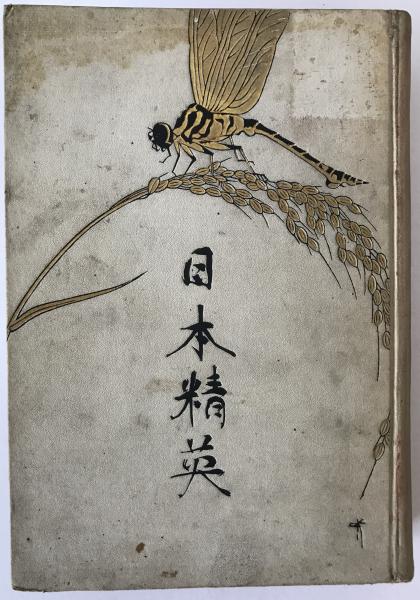 日本精英